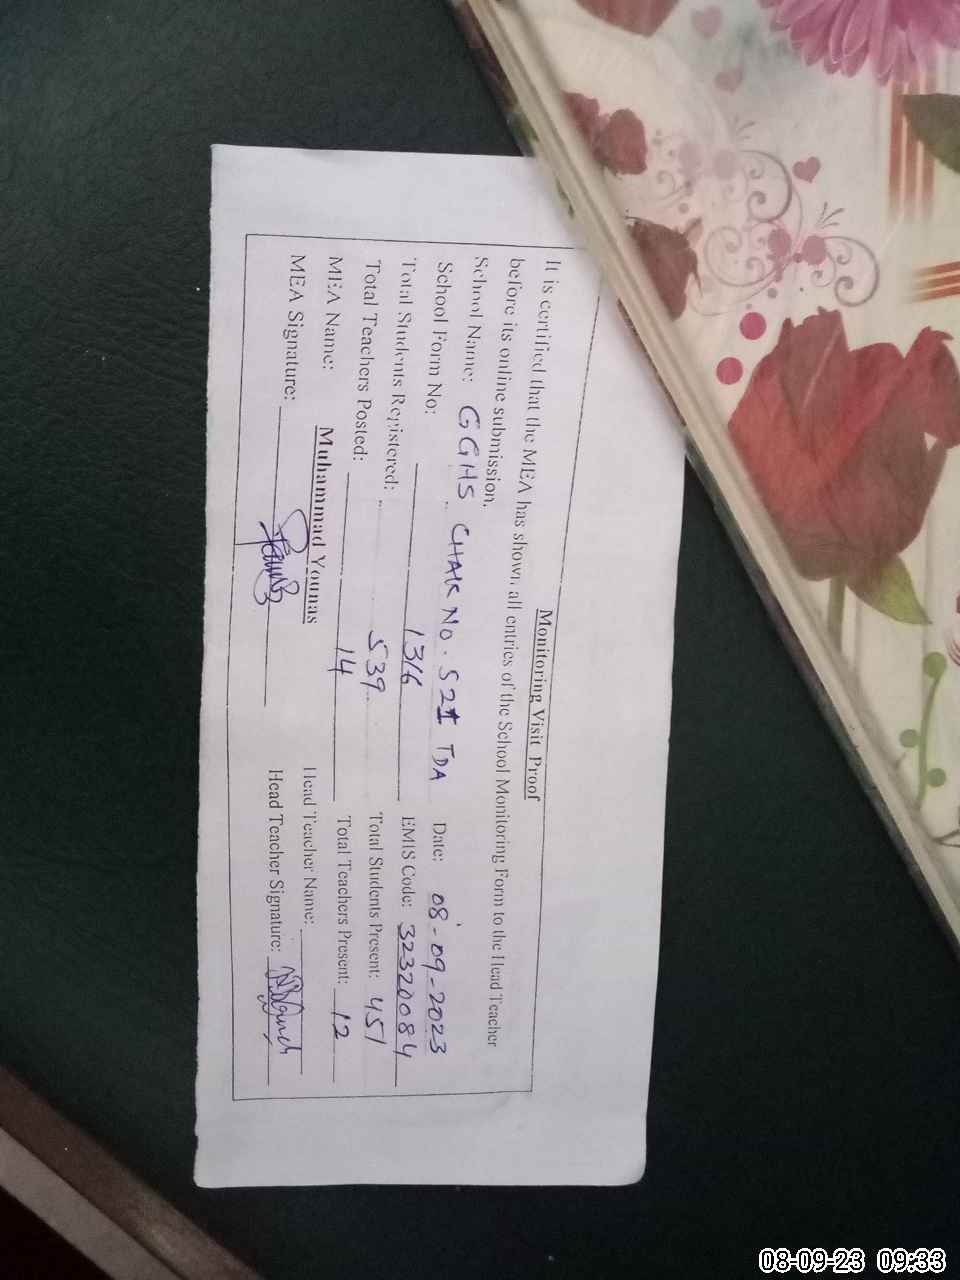 Monitoring Visit Proof
It is certified that the MEA has shown all entries of the School Monitoring Form to the Head Teacher
before its online submission.
School Name: GGHS CHAK NO. 521 TDA Date: 08-09-2023
School Form No: 1316 EMIS Code: 32320084
Total Students Registered: 539 Total Students Present: 451
Total Teachers Posted: 14 Total Teachers Present: 12
MEA Name: Muhammad Younas Head Teacher Name:
MEA Signature: Head Teacher Signature:
08-09-23 09:33